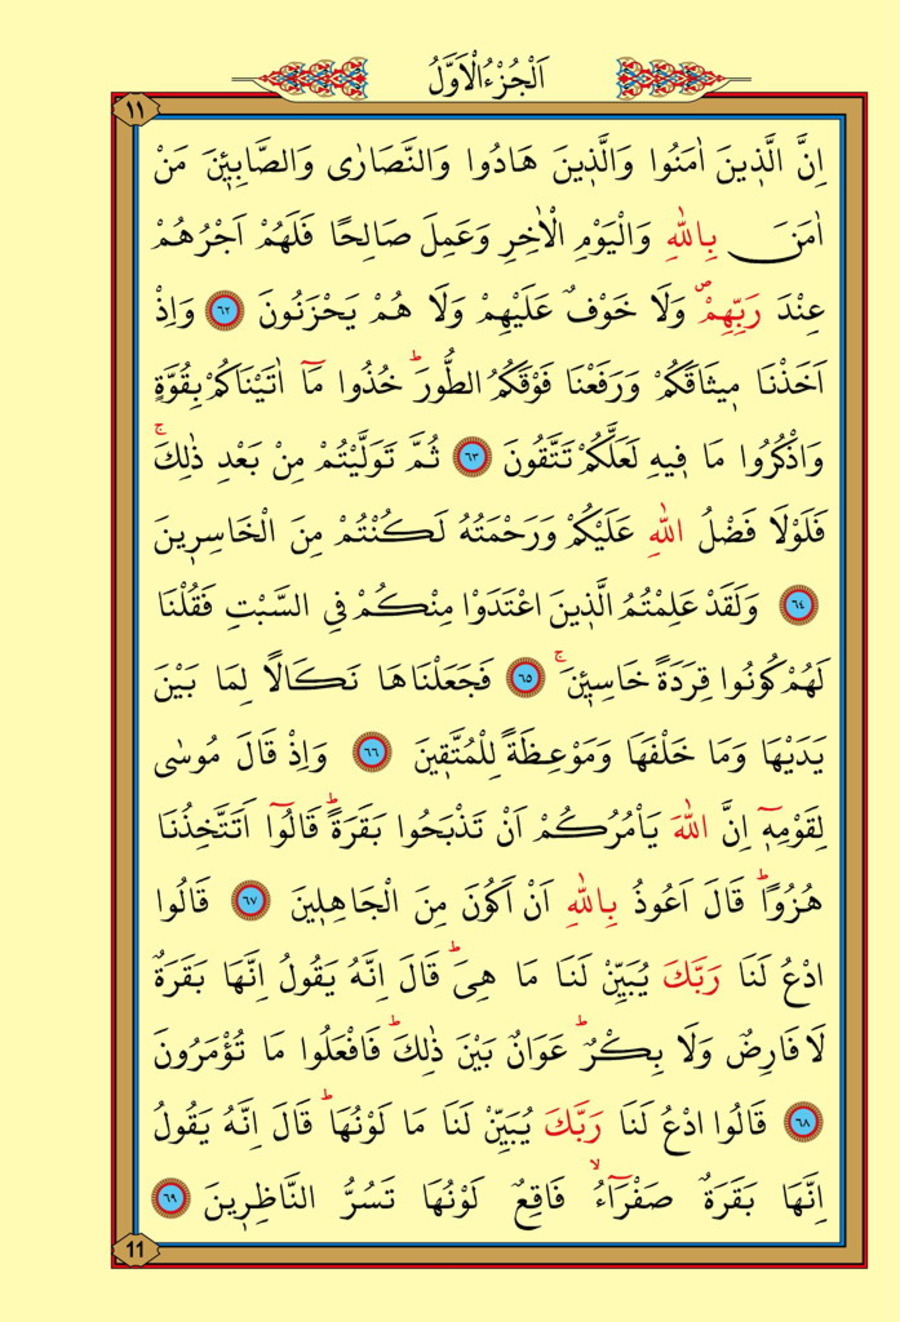 اَلْجُزْءُ الْاَوَّلُ
١١
اِنَّ الَّذ۪ينَ اٰمَنُوا وَالَّذ۪ينَ هَادُوا وَالنَّصَارٰى وَالصَّابِـ۪ٔينَ مَنْ
اٰمَنَ بِاللّٰهِ وَالْيَوْمِ الْاٰخِرِ وَعَمِلَ صَالِحًا فَلَهُمْ اَجْرُهُمْ
عِنْدَ رَبِّهِمْۖ وَلَا خَوْفٌ عَلَيْهِمْ وَلَا هُمْ يَحْزَنُونَ ٦٢ وَاِذْ
اَخَذْنَا م۪يثَاقَكُمْ وَرَفَعْنَا فَوْقَكُمُ الطُّورَۜ خُذُوا مَٓا اٰتَيْنَاكُمْ بِقُوَّةٍ
وَاذْكُرُوا مَا ف۪يهِ لَعَلَّكُمْ تَتَّقُونَ ٦٣ ثُمَّ تَوَلَّيْتُمْ مِنْ بَعْدِ ذٰلِكَۚ
فَلَوْلَا فَضْلُ اللّٰهِ عَلَيْكُمْ وَرَحْمَتُهُ لَكُنْتُمْ مِنَ الْخَاسِر۪ينَ
٦٤ وَلَقَدْ عَلِمْتُمُ الَّذ۪ينَ اعْتَدَوْا مِنْكُمْ فِي السَّبْتِ فَقُلْنَا
لَهُمْ كُونُوا قِرَدَةً خَاسِـ۪ٔينَۚ ٦٥ فَجَعَلْنَاهَا نَكَالًا لِمَا بَيْنَ
يَدَيْهَا وَمَا خَلْفَهَا وَمَوْعِظَةً لِلْمُتَّق۪ينَ ٦٦ وَاِذْ قَالَ مُوسٰى
لِقَوْمِه۪ٓ اِنَّ اللّٰهَ يَأْمُرُكُمْ اَنْ تَذْبَحُوا بَقَرَةًۜ قَالُٓوا اَتَتَّخِذُنَا
هُزُوًاۜ قَالَ اَعُوذُ بِاللّٰهِ اَنْ اَكُونَ مِنَ الْجَاهِل۪ينَ ٦٧ قَالُوا
ادْعُ لَنَا رَبَّكَ يُبَيِّنْ لَنَا مَا هِيَۜ قَالَ اِنَّهُ يَقُولُ اِنَّهَا بَقَرَةٌ
لَا فَارِضٌ وَلَا بِكْرٌۜ عَوَانٌ بَيْنَ ذٰلِكَۜ فَافْعَلُوا مَا تُؤْمَرُونَ
٦٨ قَالُوا ادْعُ لَنَا رَبَّكَ يُبَيِّنْ لَنَا مَا لَوْنُهَاۜ قَالَ اِنَّهُ يَقُولُ
اِنَّهَا بَقَرَةٌ صَفْرَٓاءُۙ فَاقِعٌ لَوْنُهَا تَسُرُّ النَّاظِر۪ينَ ٦٩
11